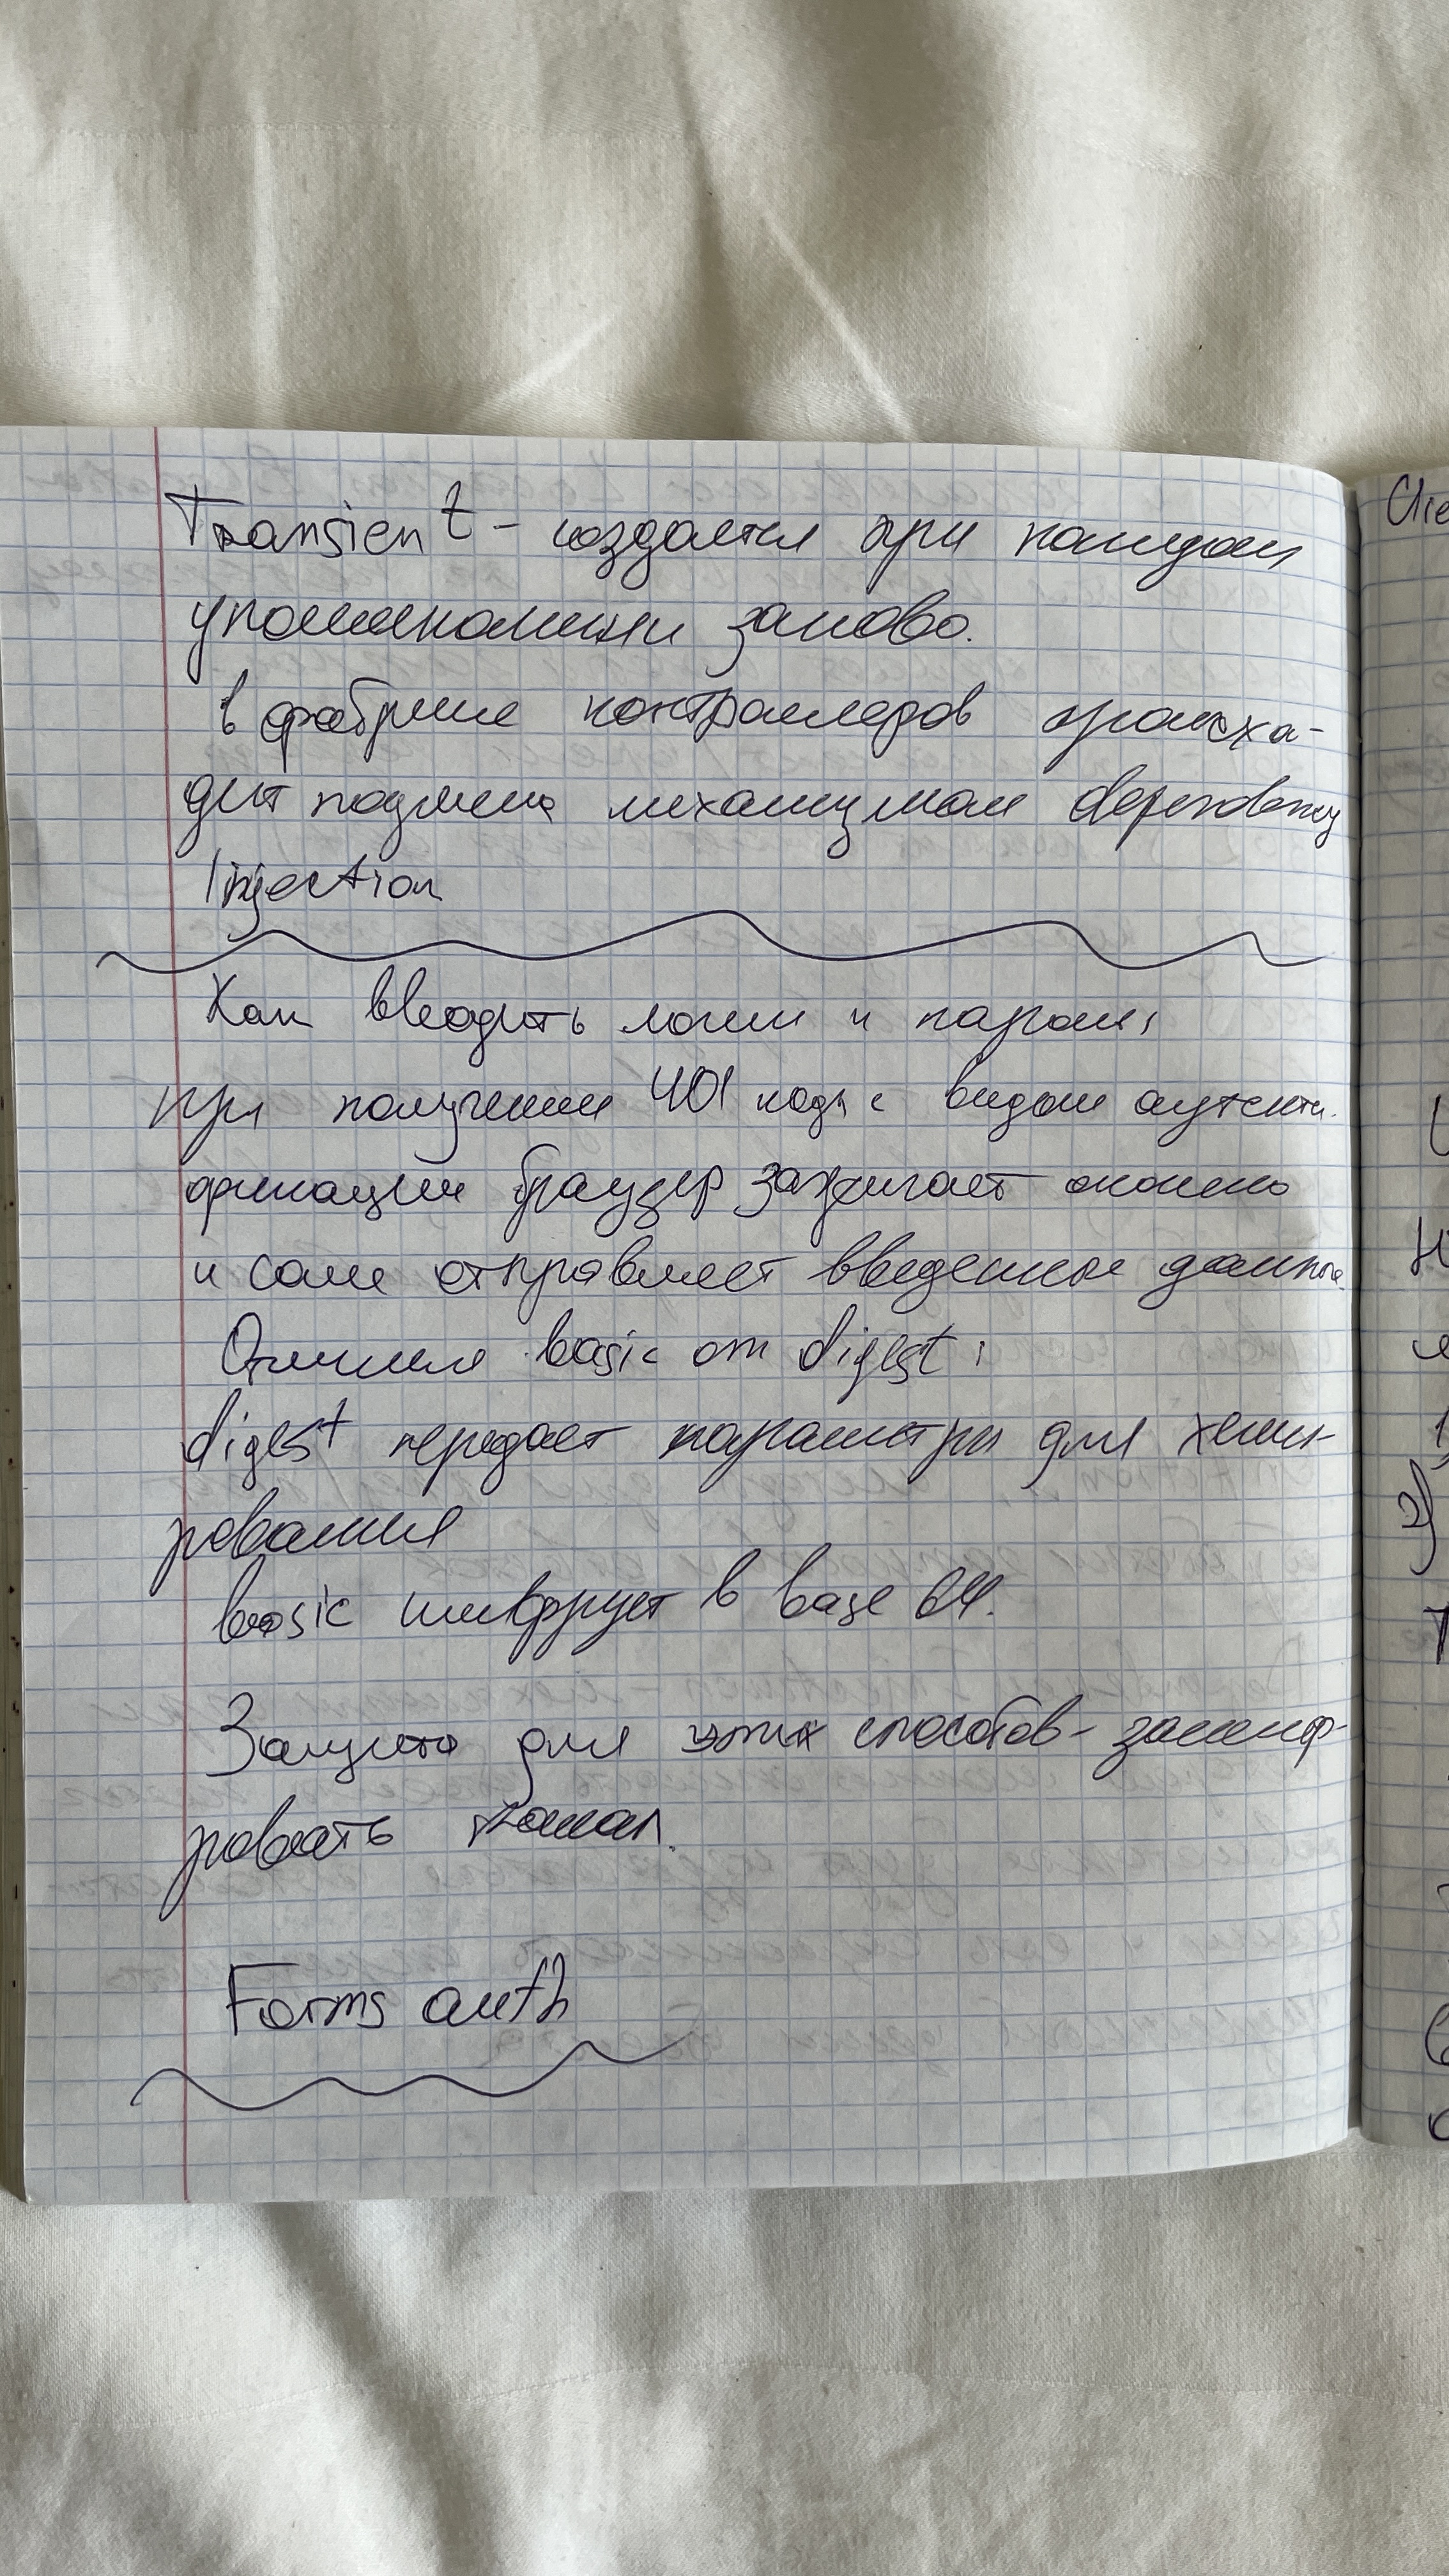 Transient - создается при каждом
упоминании заново.
в фабрике контроллеров происхо-
дит подмена механизмом dependency
Injection
Как вводить логин и пароль:
При получении 401 кода с видом аутенти-
фикации браузер зажигает окошко
и сам отправляет введенные данные.
Отличия basic от digest:
digest передает параметры для хеши-
рования
basic шифрует в base 64.
Защита для этих способов - зашиф-
ровать канал.
Forms auth
Clie